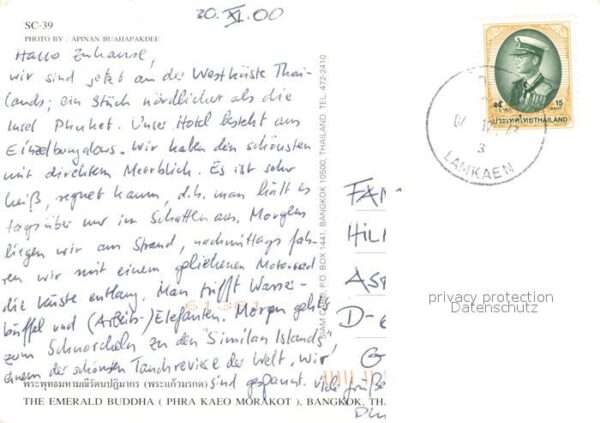 30. XI. 00
SC-39
PHOTO BY : APINAN BUAHAPAKDEE
Hallo Zuhause,
wir sind jetzt an der Westküste Thai-
lands; ein Stück nördlicher als die
Insel Phuket. Unser Hotel besteht aus
Einzelbungalows. Wir haben den schönsten
mit direktem Meerblick. Es ist sehr
heiß, regnet kaum, d.h. man hält es
tagsüber nur im Schatten aus. Morgens
liegen wir am Strand, nachmittags fah-
ren wir mit einem geliehenen Motorrad
die Küste entlang. Man trifft Wasser-
büffel und (Arbeits-)Elefanten. Morgen geht's
zum Schnorcheln zu den "Similan Islands",
einem der schönsten Tauchreviere der Welt. Wir
sind gespannt. Viele Grüße
พระพุทธมหามณีรัตนปฏิมากร (พระแก้วมรกต)
THE EMERALD BUDDHA ( PHRA KAEO MORAKOT ), BANGKOK, TH
P.O. BOX 1441, BANGKOK 10500, THAILAND. TEL. 472-2410
FAM
HIL
AS
D-
G
15
ประเทศไทย THAILAND
LAMKAEN
3
privacy protection
Datenschutz